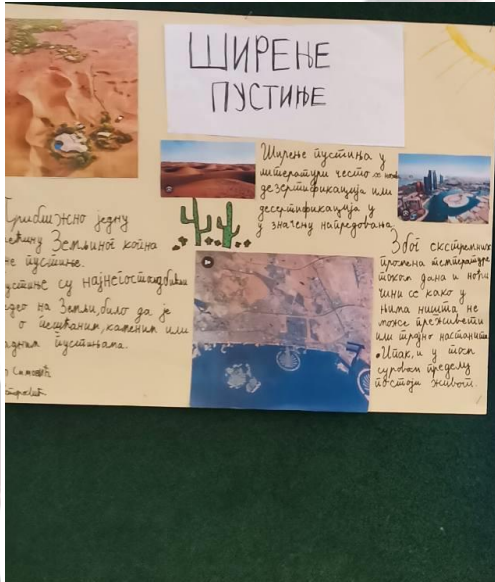 ШИРЕЊЕ
ПУСТИЊЕ
Ширење пустиња у
литератури често се
дезертификација или
десертификација у
у значењу напредовања
Приближно једну
Земљиног копна
не пустиње.
устиње су најнегостољ
део на Земљи, било да је
о пешчаним, каменим или
адним пустињама.
Због екстремних
промена температуре
током дана и ноћи
чини се како у
њима ништа не
може преживети
или трајно настанити
•Ипак, и у том
суровом пределу
постоји живот.